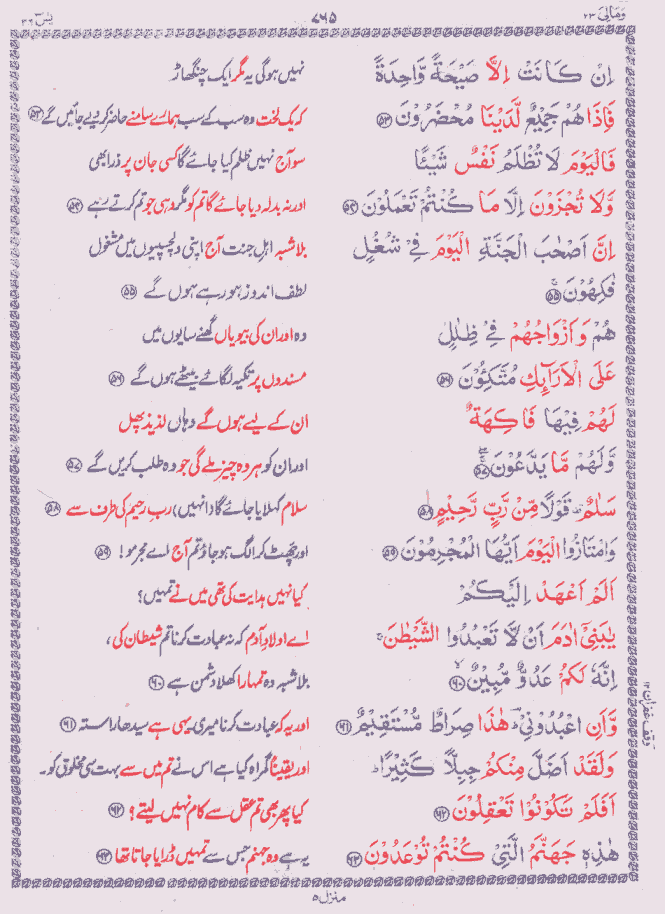 وَمَالِیَ ۲۳
۷۶۵
یٰسٓ ۳۶
اِنْ كَانَتْ اِلَّا صَیْحَةً وَّاحِدَةً
نہیں ہوگی یہ مگر ایک چنگھاڑ
فَاِذَا هُمْ جَمِیْعٌ لَّدَیْنَا مُحْضَرُوْنَ ﴿۵۳﴾
کہ یک لخت وہ سب کے سب ہمارے سامنے حاضر کر دیے جائیں گے ﴿۵۳﴾
فَالْیَوْمَ لَا تُظْلَمُ نَفْسٌ شَیْئًا
سو آج نہیں ظلم کیا جائے گا کسی جان پر ذرا بھی
وَّلَا تُجْزَوْنَ اِلَّا مَا كُنْتُمْ تَعْمَلُوْنَ ﴿۵۴﴾
اور نہ بدلہ دیا جائے گا تم کو مگر وہی جو تم کرتے رہے ﴿۵۴﴾
اِنَّ اَصْحٰبَ الْجَنَّةِ الْیَوْمَ فِیْ شُغُلٍ
بلاشبہ اہلِ جنت آج اپنی دلچسپیوں میں مشغول
فٰكِهُوْنَ ﴿۵۵﴾
لطف اندوز ہو رہے ہوں گے ﴿۵۵﴾
هُمْ وَاَزْوَاجُهُمْ فِیْ ظِلٰلٍ
وہ اور ان کی بیویاں گھنے سایوں میں
عَلَی الْاَرَآىِٕكِ مُتَّكِـُٔوْنَ ﴿۵۶﴾
مسندوں پر تکیہ لگائے بیٹھے ہوں گے ﴿۵۶﴾
لَهُمْ فِیْهَا فَاكِهَةٌ
ان کے لیے ہوں گے وہاں لذیذ پھل
وَّلَهُمْ مَّا یَدَّعُوْنَ ﴿۵۷﴾
اور ان کو ہر وہ چیز ملے گی جو وہ طلب کریں گے ﴿۵۷﴾
سَلٰمٌ قَوْلًا مِّنْ رَّبٍّ رَّحِیْمٍ ﴿۵۸﴾
سلام کہلایا جائے گا (انہیں) ربِ رحیم کی طرف سے ﴿۵۸﴾
وَامْتَازُوا الْیَوْمَ اَیُّهَا الْمُجْرِمُوْنَ ﴿۵۹﴾
اور چھٹ کر الگ ہو جاؤ تم آج اے مجرمو! ﴿۵۹﴾
اَلَمْ اَعْهَدْ اِلَیْكُمْ
کیا نہیں ہدایت کی تھی میں نے تمہیں؟
یٰبَنِیْۤ اٰدَمَ اَنْ لَّا تَعْبُدُوا الشَّیْطٰنَ ۚ
اے اولادِ آدم کہ نہ عبادت کرنا تم شیطان کی،
اِنَّهٗ لَكُمْ عَدُوٌّ مُّبِیْنٌ ﴿۶۰﴾
بلاشبہ وہ تمہارا کھلا دشمن ہے ﴿۶۰﴾
وَّاَنِ اعْبُدُوْنِیْ ؔ هٰذَا صِرَاطٌ مُّسْتَقِیْمٌ ﴿۶۱﴾
اور یہ کہ عبادت کرنا میری یہی ہے سیدھا راستہ ﴿۶۱﴾
وَلَقَدْ اَضَلَّ مِنْكُمْ جِبِلًّا كَثِیْرًا ؕ
اور یقیناً گمراہ کیا ہے اس نے تم میں سے بہت سی مخلوق کو۔
اَفَلَمْ تَكُوْنُوْا تَعْقِلُوْنَ ﴿۶۲﴾
کیا پھر بھی تم عقل سے کام نہیں لیتے؟ ﴿۶۲﴾
هٰذِهٖ جَهَنَّمُ الَّتِیْ كُنْتُمْ تُوْعَدُوْنَ ﴿۶۳﴾
یہ ہے وہ جہنم جس سے تمہیں ڈرایا جاتا تھا ﴿۶۳﴾
وقف غفران ۱۲
منزل ۵